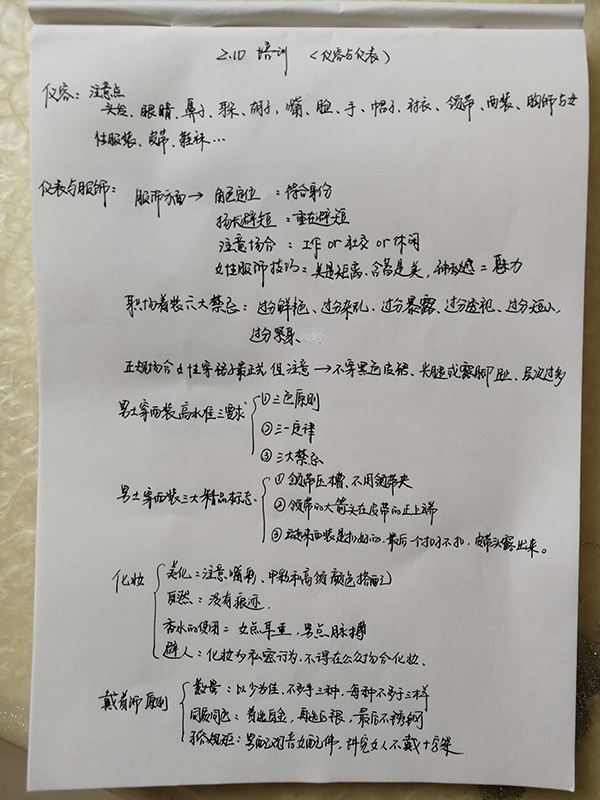 2.10 培训 （仪容与仪表）
仪容：注意点
头发、眼睛、鼻子、耳朵、胡子、嘴、脸、手、帽子、衬衣、领带、西装、胸饰与女
性服装、皮带、鞋袜…
仪表与服饰：服饰方面→角色定位：符合身份
扬长避短：重在避短
注意场合：工作or社交or休闲
女性服饰技巧=美是距离、含蓄是美，神秘感=魅力
职场着装六大禁忌：过分鲜艳、过分杂乱、过分暴露、过分透视、过分短小、
过分紧身、
正规场合女性穿裙子最正式但注意→不穿黑色皮裙、光腿或露脚趾、层次过多
男士穿西装高水准三要求 ①三色原则
②三一定律
③三大禁忌
男士穿西装三大精品标志、①领带压槽、不用领带夹
②领带的大箭头在皮带的正上端
③站起来西装是扣好的，最后一个扣子不扣，皮带头露出来。
化妆 美化：注意嘴彩、甲彩和高级颜色搭配
自然：没有痕迹.
香水的使用=女点耳垂，男点脉搏
避人：化妆为私密行为，不得在公众场合化妆、
戴首饰原则 数量：以少为佳，不多于三种，每种不多于三样
同质同色：首选白色，再选白银，最后不锈钢
符合规矩：男配 女配件，讲究女人不戴十字架